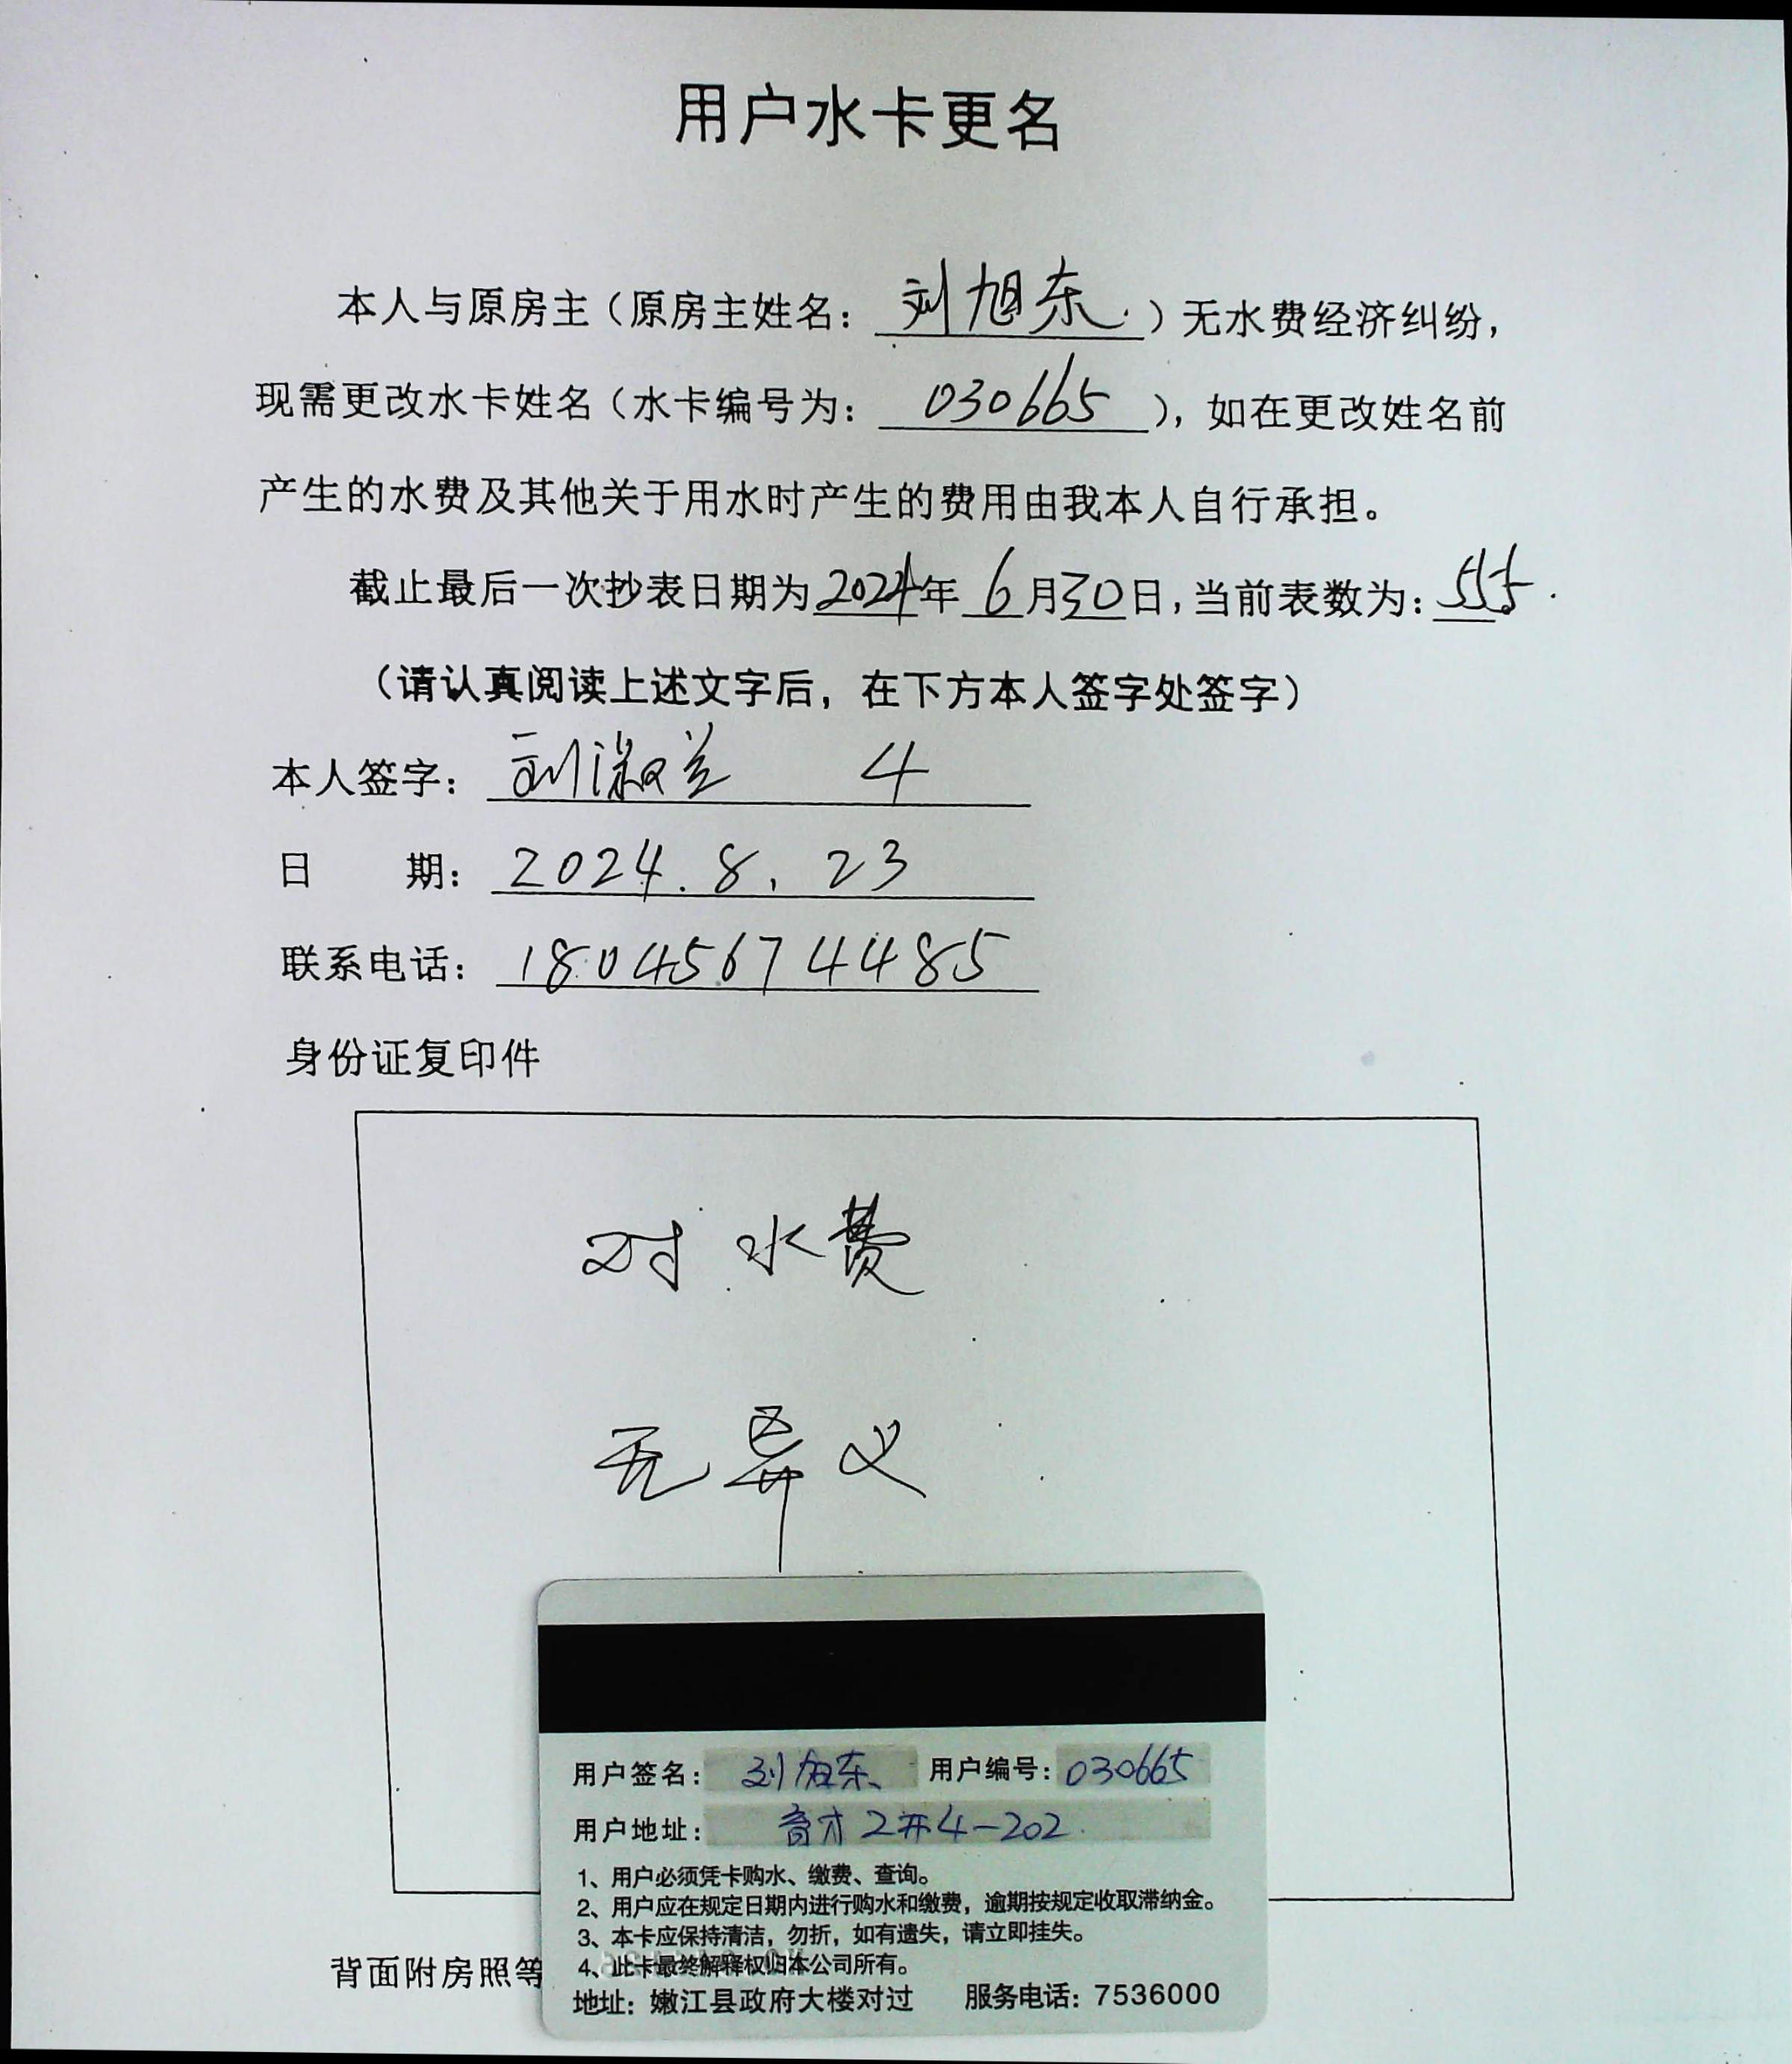 用户水卡更名
本人与原房主（原房主姓名：刘旭东）无水费经济纠纷，
现需更改水卡姓名（水卡编号为：030665），如在更改姓名前
产生的水费及其他关于用水时产生的费用由我本人自行承担。
截止最后一次抄表日期为2024年6月30日，当前表数为：555.
（请认真阅读上述文字后，在下方本人签字处签字）
本人签字：刘淑兰 4
日期：2024.8.23
联系电话：18045674485
身份证复印件
对水费
无异义
用户签名：刘旭东 用户编号：030665
用户地址：育才2#4-202
1、用户必须凭卡购水、缴费、查询。
2、用户应在规定日期内进行购水和缴费，逾期按规定收取滞纳金。
3、本卡应保持清洁，勿折，如有遗失，请立即挂失。
4、此卡最终解释权归本公司所有。
地址：嫩江县政府大楼对过 服务电话：7536000
背面附房照等